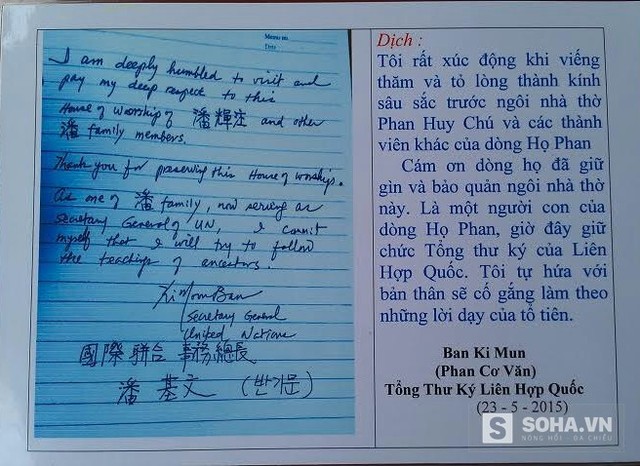 Memo no.
Date
I am deeply humbled to visit and
pay my deep respect to this
House of Worship of 潘輝注 and other
潘 family members.
Thank you for preserving this House of worship.
As one of 潘 family, now serving as
Secretary General of UN, I commit
myself that I will try to follow
the teachings of ancestors.
Ki Moon Ban
Secretary General
United Nations
國際聯合 事務總長
潘 基文 (반기문)
Dịch :
Tôi rất xúc động khi viếng
thăm và tỏ lòng thành kính
sâu sắc trước ngôi nhà thờ
Phan Huy Chú và các thành
viên khác của dòng Họ Phan
Cám ơn dòng họ đã giữ
gìn và bảo quản ngôi nhà thờ
này. Là một người con của
dòng Họ Phan, giờ đây giữ
chức Tổng thư ký của Liên
Hợp Quốc. Tôi tự hứa với
bản thân sẽ cố gắng làm theo
những lời dạy của tổ tiên.
Ban Ki Mun
(Phan Cơ Văn)
Tổng Thư Ký Liên Hợp Quốc
(23 - 5 - 2015)
S SOHA.VN
NÓNG HỔI - ĐA CHIỀU